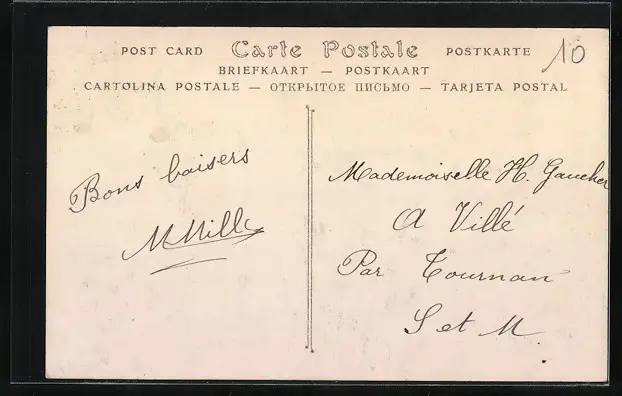 POST CARD Carte Postale POSTKARTE
BRIEFKAART — POSTKAART
CARTOLINA POSTALE — ОТКРЫТОЕ ПИСЬМО — TARJETA POSTAL
10
Bons baisers
Mademoiselle H. Gaucher
A Villé
Par Tournan
S et M.